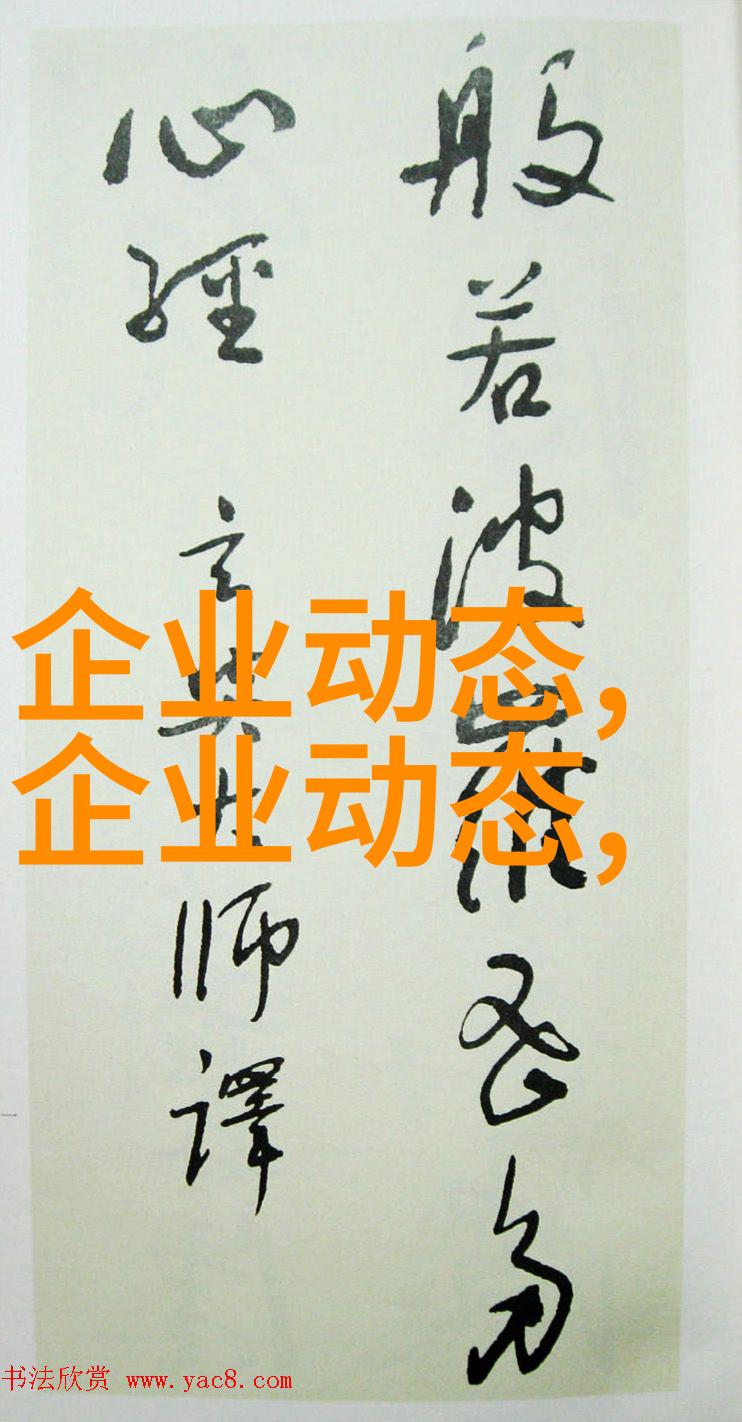 般若波羅密多
心經 玄奘大師譯
企业动态,
企业动态,
书法欣赏 www.yac8.com